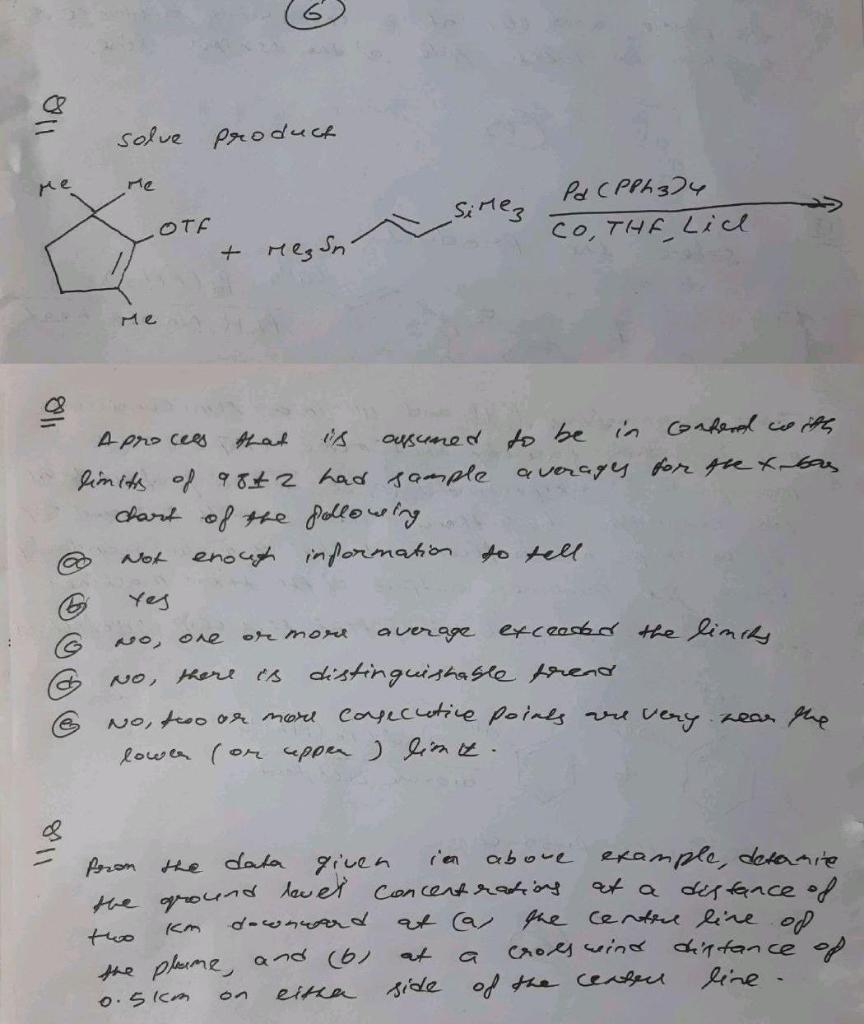 6
Q
solve product
Me Me
OTF
+ Me3Sn SiMe3 Pd(PPh3)4
CO, THF, LiCl
Me
Q
A process that is assumed to be in control with
limits of 98±2 had sample averages for the x-bar
chart of the following
(a) Not enough information to tell
(b) Yes
(c) No, one or more average exceeded the limits
(d) No, there is distinguishable trend
(e) No, two or more consecutive points are very near the
lower (or upper) limit.
Q
From the data given in above example,
the ground level concentrations at a distance of
two km downward at (a) the centre line of
the plume, and (b) at a cross wind distance of
0.5 km on either side of the centre line.